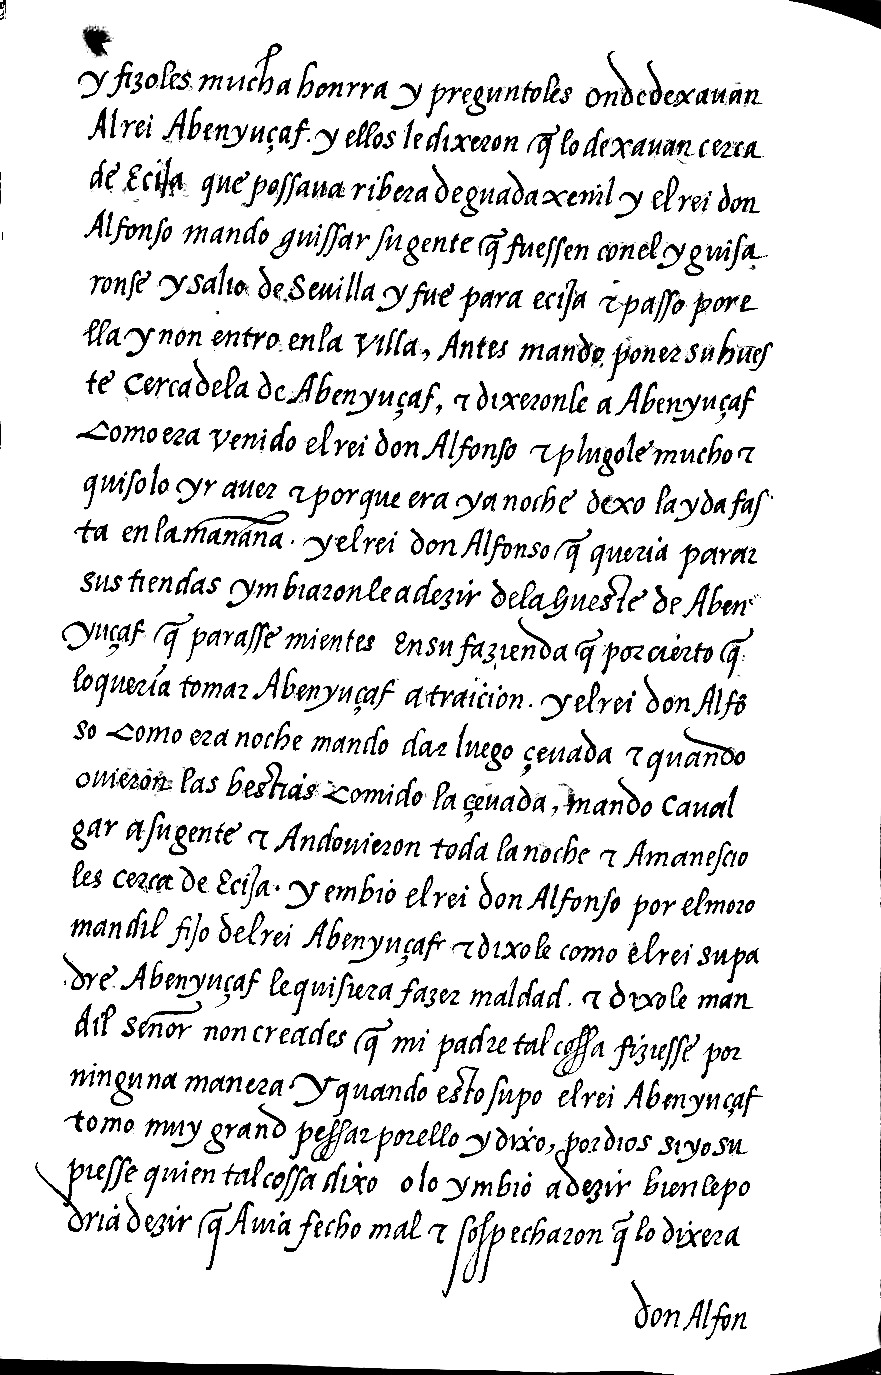 y fizoles mucha honrra y preguntoles onde dexauan
Al rei Abenyuçaf. y ellos le dixeron q̃ lo dexauan cerca
de Ecija que possaua ribera de guadaxenil y el rei don
Alfonso mando guissar su gente q̃ fuessen con el y guisa
ronse y salio de Seuilla y fue para ecija τ passo por e
lla y non entro en la villa, Antes mando poner su hues
te cerca de la de Abenyuçaf, τ dixeronle a Abenyuçaf
Como era venido el rei don Alfonso τ plugole mucho τ
quisolo yr auer τ porque era ya noche dexo la yda fas
ta en la mañana. y el rei don Alfonso q̃ queria parar
sus tiendas ymbiaronle a dezir de la hueste de Aben
yuçaf q̃ parasse mientes En su fazienda q̃ por cierto q̃
lo queria tomar Abenyuçaf a traicion. y el rei don Alfõ
so Como era noche mando dar luego çeuada τ quando
ouieron las bestias Comido la çeuada, mando Caual
gar a su gente τ Andouieron toda la noche τ Amanescio
les cerca de Ecija. y embio el rei don Alfonso por el moro
mandil fijo del rei Abenyuçaf τ dixole como el rei su pa
dre Abenyuçaf le quisiera fazer maldad. τ dixole man
dil señor non creades q̃ mi padre tal cossa fiziesse por
ninguna manera y quando esto supo el rei Abenyuçaf
tomo muy grand pessar por ello y dixo, por dios si yo su
piesse quien tal cossa dixo o lo ymbio a dezir bien le po
dria dezir q̃ Auia fecho mal τ sospecharon q̃ lo dixera
don Alfon